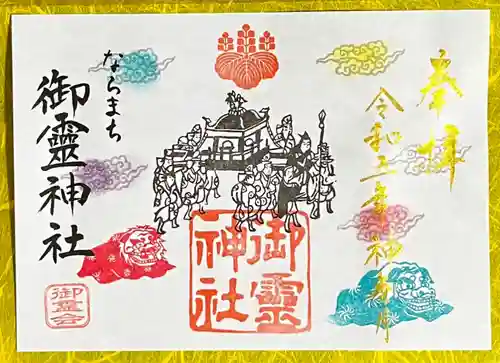 奉拝
令和五年神有月
御霊
神社
ならまち
御靈神社
御霊会